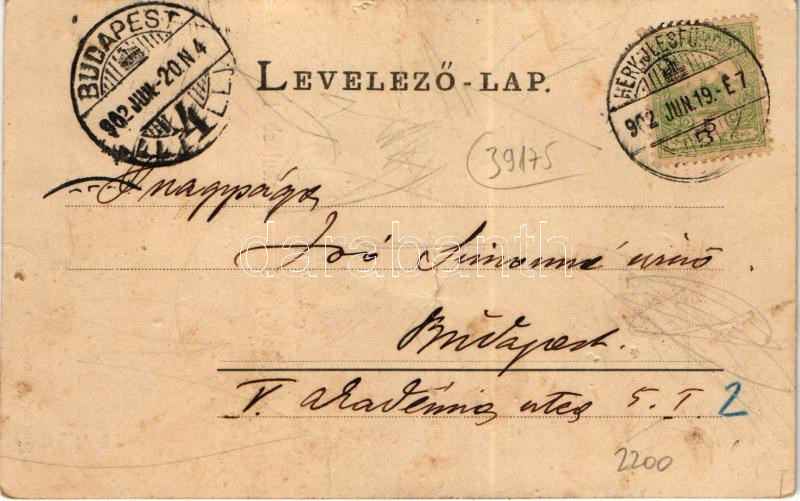 BUDAPEST
902 JUN.-20 N 4
4
LEVELEZŐ-LAP.
902 JUN.19.-E 7
39175
Ő nagysága
darabanth
Simonné úrnő
Budapest.
V. Akadémia utca 5. I. 2
2200